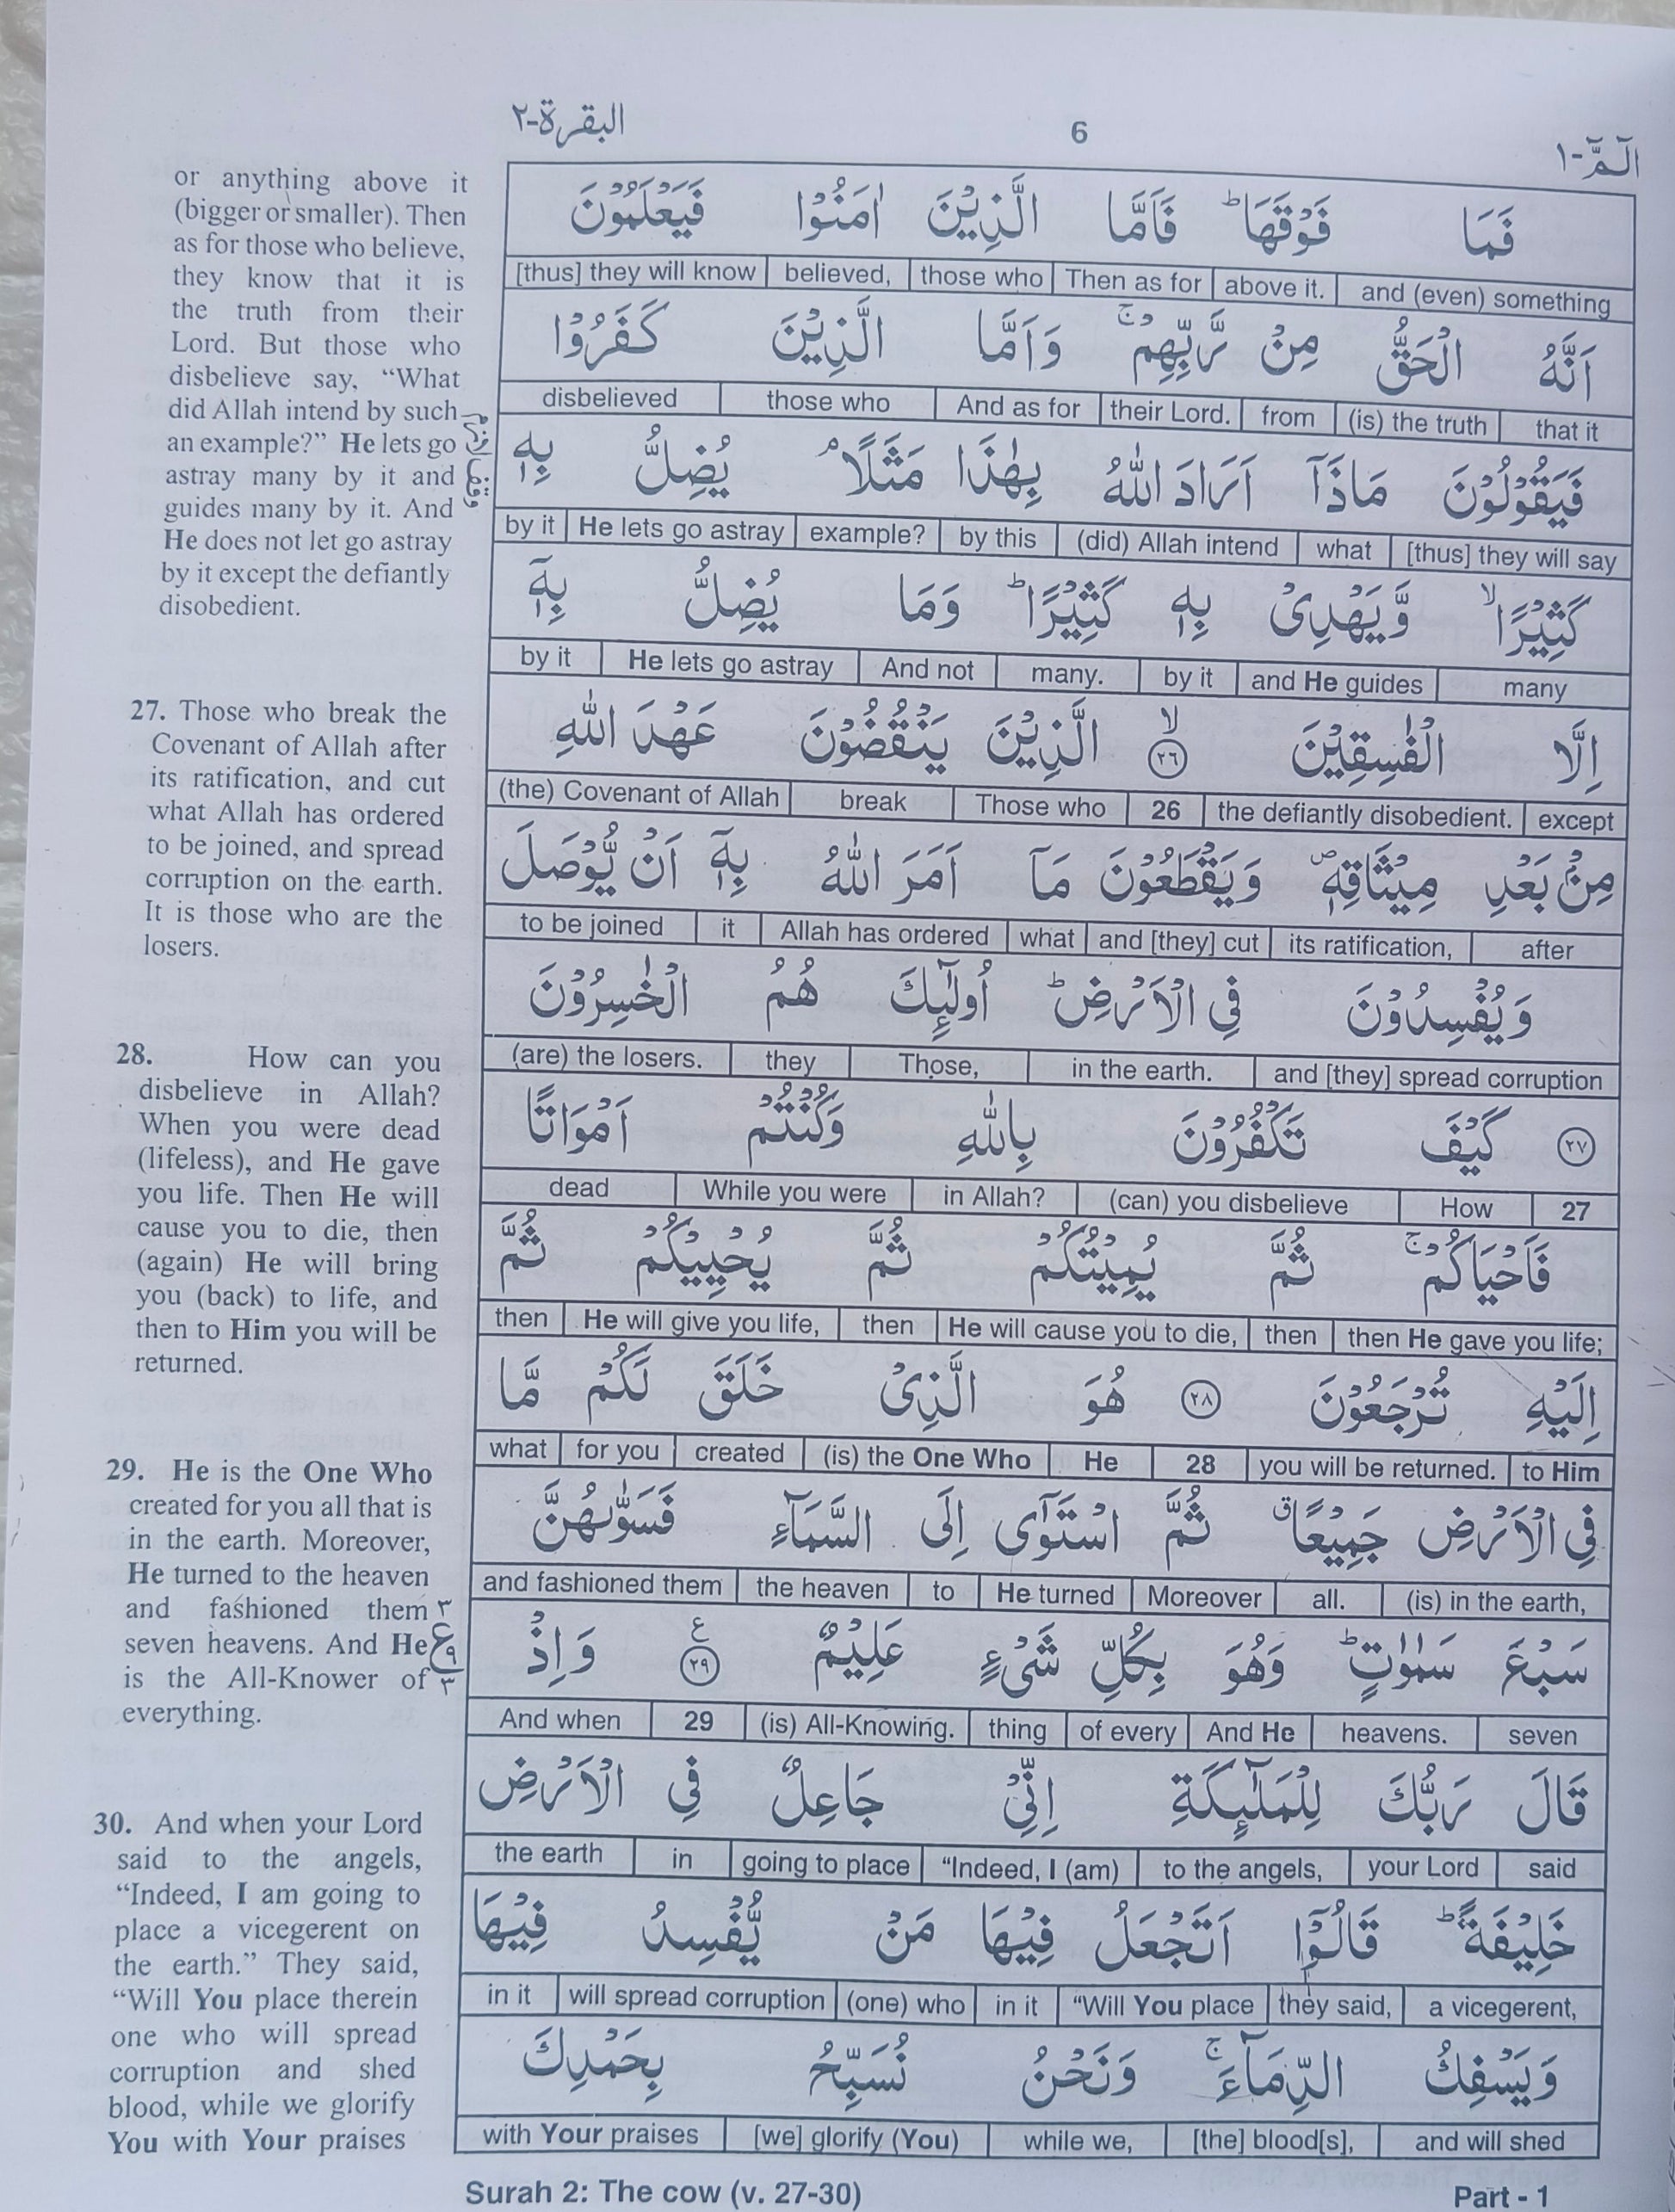 البقرة-٢
6
الٓمّٓ-١
or anything above it
(bigger or smaller). Then
as for those who believe,
they know that it is
the truth from their
Lord. But those who
disbelieve say, “What
did Allah intend by such
an example?” He lets go
astray many by it and
guides many by it. And
He does not let go astray
by it except the defiantly
disobedient.
27. Those who break the
Covenant of Allah after
its ratification, and cut
what Allah has ordered
to be joined, and spread
corruption on the earth.
It is those who are the
losers.
28. How can you
disbelieve in Allah?
When you were dead
(lifeless), and He gave
you life. Then He will
cause you to die, then
(again) He will bring
you (back) to life, and
then to Him you will be
returned.
29. He is the One Who
created for you all that is
in the earth. Moreover,
He turned to the heaven
and fashioned them
seven heavens. And He
is the All-Knower of
everything.
30. And when your Lord
said to the angels,
“Indeed, I am going to
place a vicegerent on
the earth.” They said,
“Will You place therein
one who will spread
corruption and shed
blood, while we glorify
You with Your praises
فَمَا فَوْقَهَا ؕ فَاَمَّا الَّذِيْنَ اٰمَنُوْا فَيَعْلَمُوْنَ
[thus] they will know believed, those who Then as for above it. and (even) something
اَنَّهُ الْحَقُّ مِنْ رَّبِّهِمْ ۚ وَاَمَّا الَّذِيْنَ كَفَرُوْا
disbelieved those who And as for their Lord. from (is) the truth that it
فَيَقُوْلُوْنَ مَاذَاۤ اَرَادَ اللّٰهُ بِهٰذَا مَثَلًا ۘ يُضِلُّ بِهٖ
by it He lets go astray example? by this (did) Allah intend what [thus] they will say
كَثِيْرًا ۙ وَّيَهْدِىْ بِهٖ كَثِيْرًا ؕ وَمَا يُضِلُّ بِهٖۤ
by it He lets go astray And not many. by it and He guides many
اِلَّا الْفٰسِقِيْنَ ۙ ٢٦ الَّذِيْنَ يَنْقُضُوْنَ عَهْدَ اللّٰهِ
(the) Covenant of Allah break Those who 26 the defiantly disobedient. except
مِنْۢ بَعْدِ مِيْثَاقِهٖ ۪ وَيَقْطَعُوْنَ مَاۤ اَمَرَ اللّٰهُ بِهٖۤ اَنْ يُّوْصَلَ
to be joined it Allah has ordered what and [they] cut its ratification, after
وَيُفْسِدُوْنَ فِى الْاَرْضِ ؕ اُولٰٓئِكَ هُمُ الْخٰسِرُوْنَ
(are) the losers. they Those, in the earth. and [they] spread corruption
٢٧ كَيْفَ تَكْفُرُوْنَ بِاللّٰهِ وَكُنْتُمْ اَمْوَاتًا
dead While you were in Allah? (can) you disbelieve How 27
فَاَحْيَاكُمْ ۚ ثُمَّ يُمِيْتُكُمْ ثُمَّ يُحْيِيْكُمْ ثُمَّ
then He will give you life, then He will cause you to die, then then He gave you life;
اِلَيْهِ تُرْجَعُوْنَ ٢٨ هُوَ الَّذِىْ خَلَقَ لَكُمْ مَّا
what for you created (is) the One Who He 28 you will be returned. to Him
فِى الْاَرْضِ جَمِيْعًا ۗ ثُمَّ اسْتَوٰۤى اِلَى السَّمَآءِ فَسَوّٰىهُنَّ
and fashioned them the heaven to He turned Moreover all. (is) in the earth,
سَبْعَ سَمٰوٰتٍ ؕ وَهُوَ بِكُلِّ شَىْءٍ عَلِيْمٌ ٢٩ ع وَاِذْ
And when 29 (is) All-Knowing. thing of every And He heavens. seven
قَالَ رَبُّكَ لِلْمَلٰٓئِكَةِ اِنِّىْ جَاعِلٌ فِى الْاَرْضِ
the earth in going to place “Indeed, I (am) to the angels, your Lord said
خَلِيْفَةً ؕ قَالُوْۤا اَتَجْعَلُ فِيْهَا مَنْ يُّفْسِدُ فِيْهَا
in it will spread corruption (one) who in it “Will You place they said, a vicegerent,
وَيَسْفِكُ الدِّمَآءَ ۚ وَنَحْنُ نُسَبِّحُ بِحَمْدِكَ
with Your praises [we] glorify (You) while we, [the] blood[s], and will shed
٣
ع
٩
٣
Surah 2: The cow (v. 27-30)
Part - 1